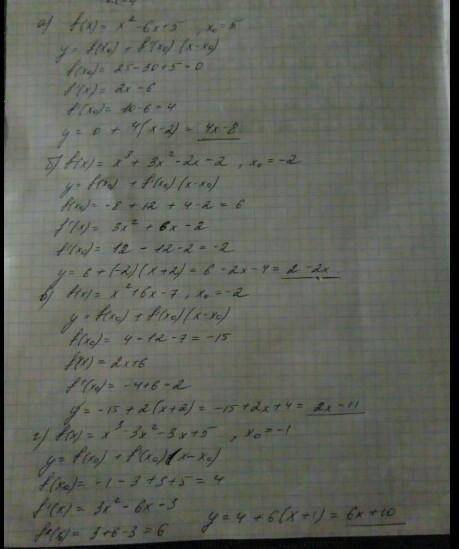 а) f(x) = x² - 6x + 5 , x₀ = 5
y = f(x₀) + f'(x₀) (x - x₀)
f(x₀) = 25 - 30 + 5 = 0
f'(x) = 2x - 6
f'(x₀) = 10 - 6 = 4
y = 0 + 4(x - 2) = 4x - 8
б) f(x) = x³ + 3x² - 2x - 2 , x₀ = -2
y = f(x₀) + f'(x₀) (x - x₀)
f(x₀) = -8 + 12 + 4 - 2 = 6
f'(x) = 3x² + 6x - 2
f'(x₀) = 12 - 12 - 2 = -2
y = 6 + (-2)(x + 2) = 6 - 2x - 4 = 2 - 2x
в) f(x) = x² + 6x - 7 , x₀ = -2
y = f(x₀) + f'(x₀) (x - x₀)
f(x₀) = 4 - 12 - 7 = -15
f'(x) = 2x + 6
f'(x₀) = -4 + 6 = 2
y = -15 + 2(x + 2) = -15 + 2x + 4 = 2x - 11
г) f(x) = x³ - 3x² - 3x + 5 , x₀ = -1
y = f(x₀) + f'(x₀) (x - x₀)
f(x₀) = -1 - 3 + 3 + 5 = 4
f'(x) = 3x² - 6x - 3
f'(x₀) = 3 + 6 - 3 = 6 y = 4 + 6(x + 1) = 6x + 10